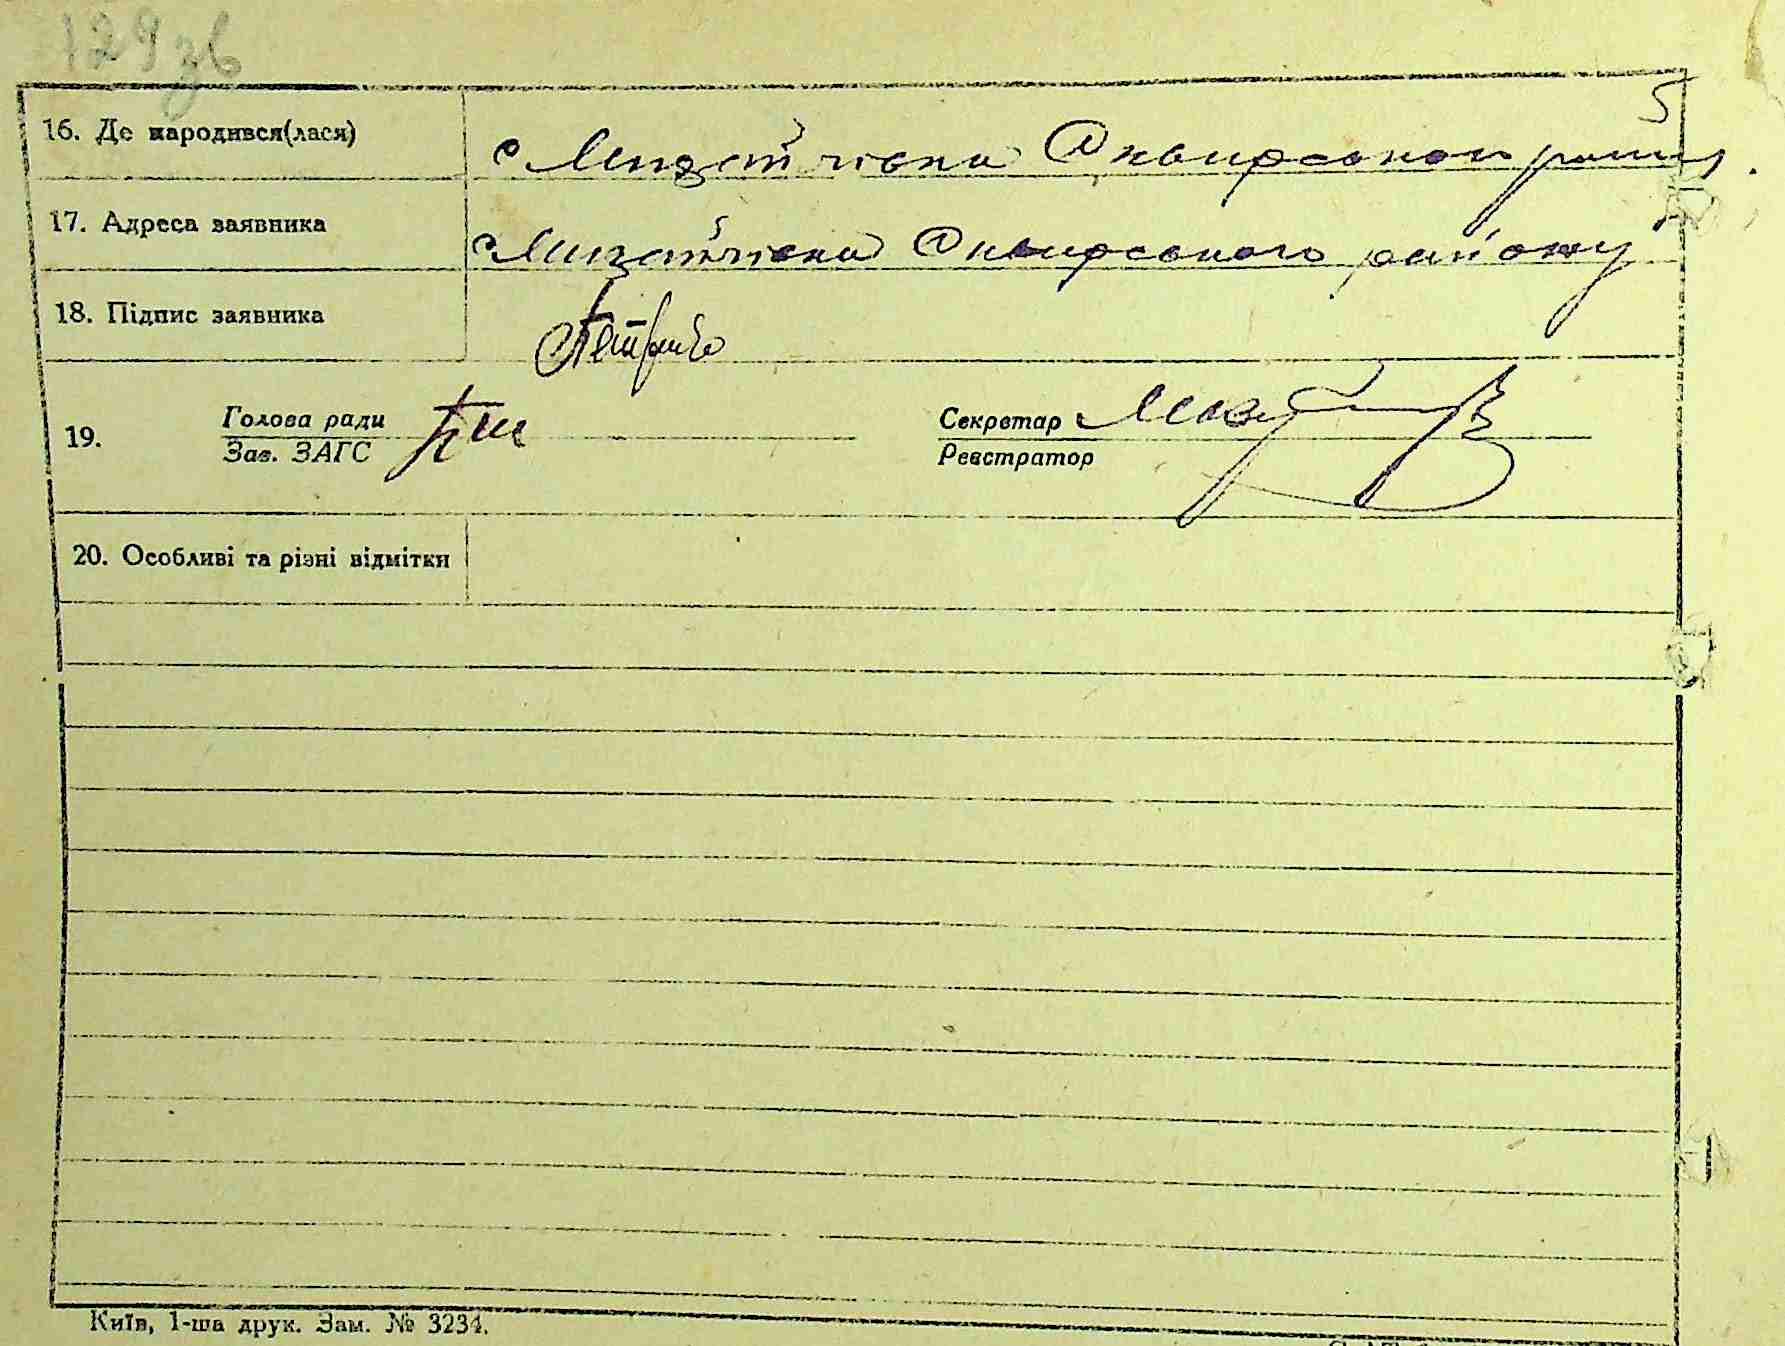 129 зв
16. Де народився(лася) с Мизяківка Сквирського району
17. Адреса заявника с Мизяківка Сквирського району
18. Підпис заявника
19. Голова ради Секретар
Зав. ЗАГС Реєстратор
20. Особливі та різні відмітки
Київ, 1-ша друк. Зам. № 3234.